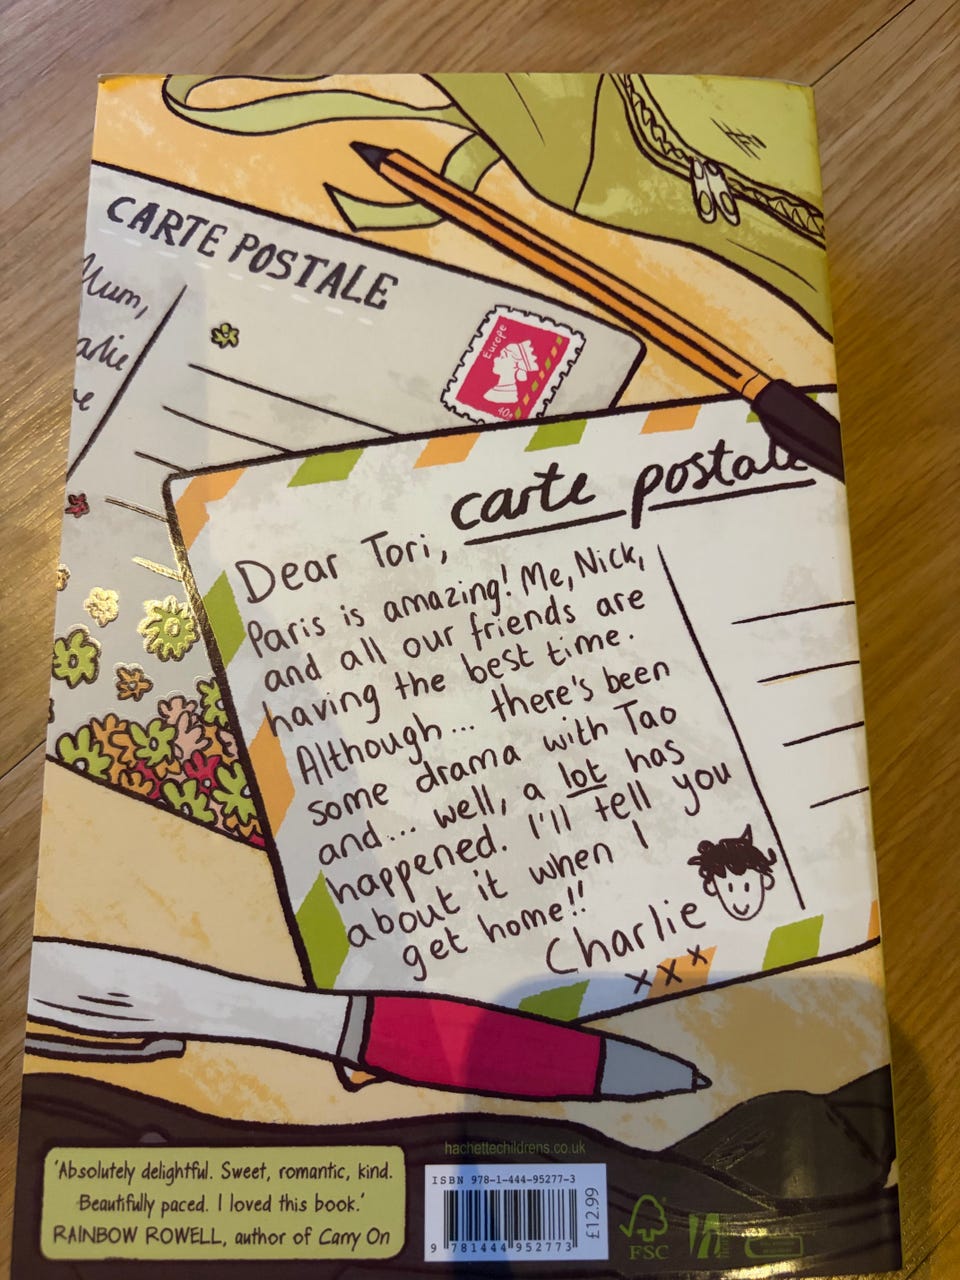 CARTE POSTALE
Mum,
Europe
carte postale
Dear Tori,
Paris is amazing! Me, Nick,
and all our friends are
having the best time.
Although... there's been
some drama with Tao
and... well, a lot has
happened. I'll tell you
about it when I
get home!!
Charlie
xxx
hachettechildrens.co.uk
'Absolutely delightful. Sweet, romantic, kind.
Beautifully paced. I loved this book.'
RAINBOW ROWELL, author of Carry On
ISBN 978-1-444-95277-3
9 781444 952773
£12.99
FSC